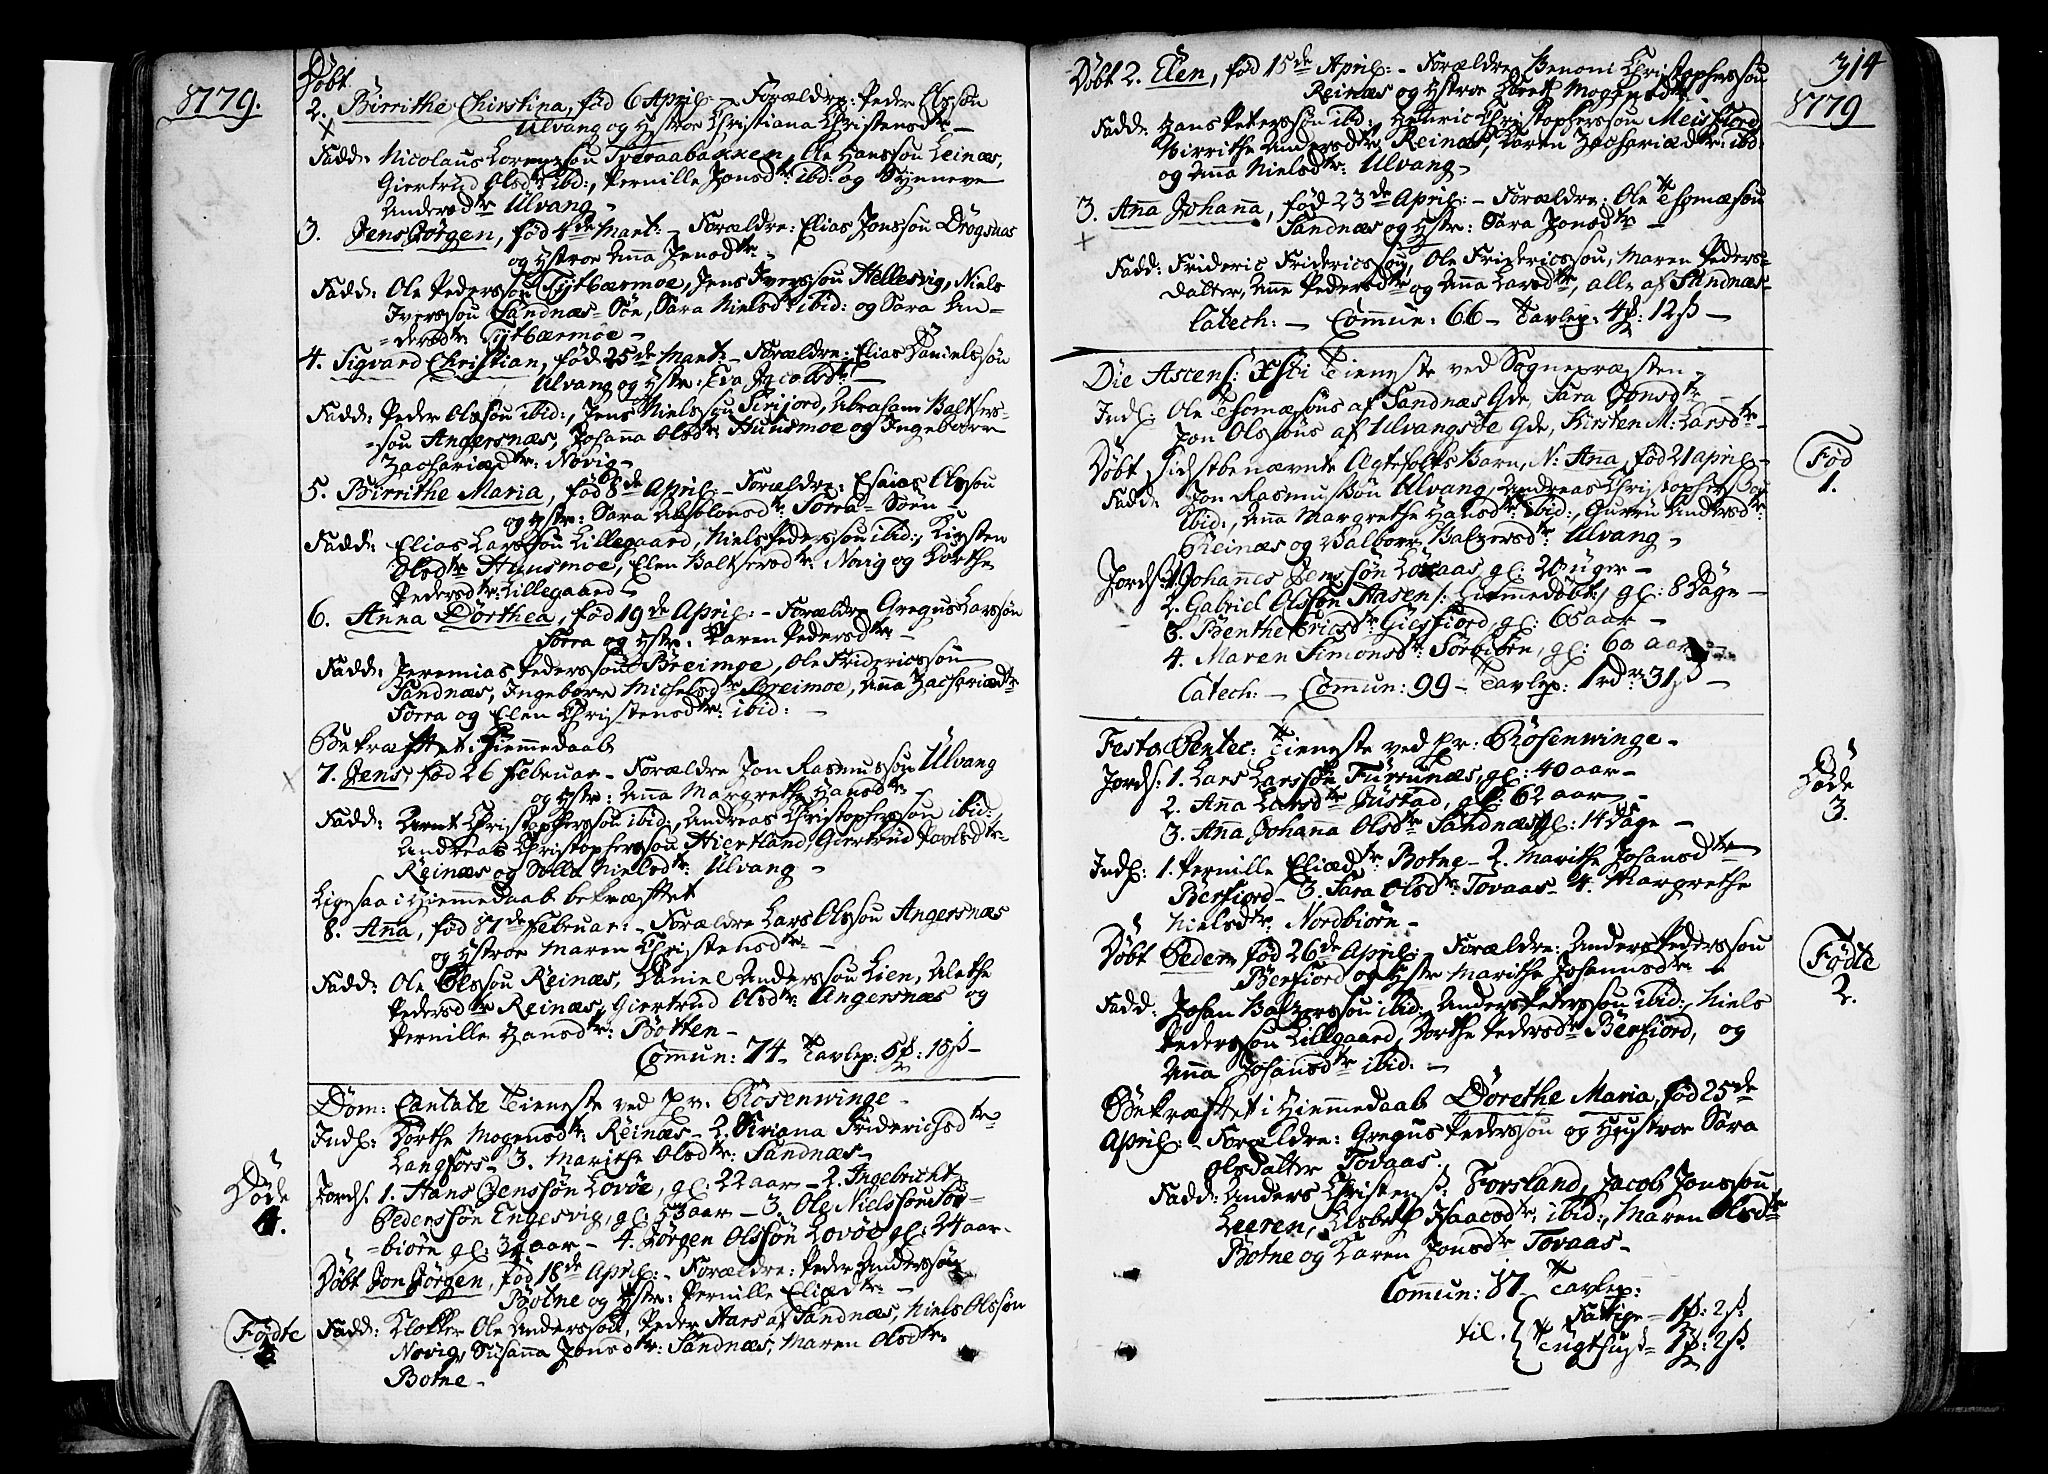 1779.
Døbt
2. Birrithe Chirstina, fød 6 April: – Forældre: Peder Olssøn
Ulvang og Hstroe Christiana Christensdtr –
Fadd: Nicolaus Lorenzsøn Tveraabakken, Ole Hanssøn Leinæs,
Giertrud Olsdtr ibd:, Pernille Jonsdtr: ibd: og Synneve
Andersdtr Ulvang –
3. Jens Jørgen, fød 4de Mart: – Forældre: Elias Jonssøn Drogsnæs
og Hstroe Anna Jensdtr: –
Fadd: Ole Pederssøn Tytbærmoe, Jens Iverssøn Hellesvig, Niels
Iverssøn Sandnæs-Søe, Sara Nielsdtr: ibid: og Sara An=
=dersdtr Tytbærmoe –
4. Sigvard Christian, fød 25de Mart: – Forældre: Elias Danielssøn
Ulvang og Hstr: Eva Jacobsdtr: –
Fadd: Peder Olssøn ibid:, Jens Nielssøn Sirijord, Abraham Baltsers=
=søn Angersnæs, Johanna Olsdtr: Huusmoe og Ingeborr
Zachariædtr: Novig –
5. Birrithe Maria, fød 8de April: – Forældre: Esaias Olssøn
og Hstr: Sara Absolonsdtr: Sorra-Søen –
Fadd: Elias Larssøn Lillegaard, Niels Pederssøn ibid:, Kirsten
Olsdtr Huusmoe, Elen Baltsersdtr: Novig og Dorthe
Pedersdtr: Lillegaard –
6. Anna Dorthea, fød 19de April: – Forældre Gregus Larssøn
Sorra og Hstr: Karen Pedersdtr: –
Fadd: Jeremias Pederssøn Breimoe, Ole Fridericssøn
Sandnæs, Ingeborr Michelsdtr Breimoe, Anna Zachariædtr
Sorra og Elen Christensdtr: ibid: –
Bekræftet Hiemmedaab
7. Jens, fød 26 Februar – Forældre Jon Rasmussøn Ulvang
og Hstr: Anna Margrethe Hansdtr:
Fadd: Arnt Christopherssøn ibid:, Andreas Christopherssøn ibid:,
Andreas Christopherssøn Hiertland, Giertrud Povlsdtr:
Reinæs og Nielsdtr: Ulvang –
Ligesaa i Hiemmedaab bekræftet
8. Anna, fød 17de Februar: – Forældre Lars Olssøn Angersnæs
og Hstroe Maren Christensdtr: –
Fadd: Ole Olssøn Reinæs, Daniel Anderssøn Lien, Alethe
Pedersdtr Reinæs, Giertrud Olsdtr: Angersnæs og
Pernille Hansdtr: Botten –
Commun: 74 – Tavlep: 5 : 15ß –
Dom: Cantate Tieneste ved pr. Rosenwinge –
Indl: Dorthe Mogensdtr: Reinæs – 2. Siriana Friderichsdtr
Langfors – 3. Marithe Olsdtr: Sandnæs –
Døde
4.
Jords: 1. Hans Jenssøn Lovöe, gl: 22 aar – 2. Ingebricht
Pederssøn Engesvig, gl: 53 aar – 3. Ole Nielssøn Sør=
=biørn gl: 32 aar – 4. Jørgen Olssøn Lovöe gl: 24 aar –
Døbt Jon Jørgen, fød 18de April: – Forældre: Peder Anderssøn
Botne og Hstr: Pernille Eliædtr: –
Fødte
Fadd: Klokker Ole Anderssøn, Peder Aars af Sandnæs, Niels Olssøn
Novig, Susanna Jonsdtr: Sandnæs, Maren Olsdtr:
Botne –
314
1779
Døbt 2. Elen, fød 15de April: – Forældre Benoni Christopherssøn
Reinæs og Hstroe Dorett Mogensdtr
Fadd: Hans Peterssøn ibid:, Henric Christopherssøn Meisfiord
Birrithe Andersdtr Reinæs, Karen Zachariædtr: ibd:
og Anna Nielsdtr: Ulvang –
3. Anna Johanna, fød 23de April: – Forældre: Ole Thomæsøn
Sandnæs og Hstr: Sara Jonsdtr –
Fadd: Frideric Fridericssøn, Ole Fridericssøn, Maren Peders=
datter, Anne Pedersdtr og Anna Larsdtr, alle af Sandnæs –
Catech: – Commun: 66 – Tavlep: 4 : 12ß –
Die Ascens: Xsti Tieneste ved Sognepræsten –
Indl: Ole Thomæsøns af Sandnæs Gde, Sara Jonsdtr –
Jon Olssøns af Ulvangsöe Gde, Kirsten M: Larsdtr –
Døbt Sidstbenævnte Ægtefolks Barn, N: Anna, fød 21 april –
Fød
1.
Fadd: Jon Rasmussøn Ulvang, Andreas Christopherssøn
ibid:, Anna Margrethe Hansdtr: ibid:, Gurru Andersdtr:
Reinæs og Valborr Balzersdtr: Ulvang –
Jords: 1. Johannes Jenssøn Lovaas, gl: 20 uger –
2. Gabriel Olssøn Aasen /: Hiemmedøbt:/ gl: 8 Dage –
3. Benthe Ericsdtr: Giesfiord, gl: 65 aar –
4. Maren Simonsdtr: Sørbiørn, gl: 60 aar
Catech: – Commun: 99 – Tavlep: 1 rdr: 31ß –
Festo Pentec: Tieneste ved pr: Rosenwinge –
Døde
3.
Jords: 1. Lars Larssøn Furunæs, gl: 40 aar –
2. Anna Larsdtr Justad, gl: 62 aar –
3. Anna Johanna Olsdtr Sandnæs gl: 14 dage –
Indl: 1. Pernille Eliædtr: Botne – 2. Marithe Johansdtr
Berfiord – 3. Sara Olsdtr: Tovaas – 4. Margrethe
Nielsdtr: Nordbiørn –
Fødte
2.
Døbt Peder, fød 26de April: – Forældre: Anders Pederssøn
Berfiord og Hstr Marithe Johannsdtr –
Fadd: Johan Balzerssøn ibid:, Anders Pederssøn ibid:, Niels
Pederssøn Lillgaard, Dorthe Pedersdtr Berfiord, og
Anna Johansdtr ibid: –
Bekræftet i Hiemmedaab Dorethe Maria, fød 25de
April: – Forældre: Gregus Pederssøn og Hustroe Sara
Olsdatter Tovaas.
Fadd: Anders Christens: Forsland, Jacob Jonssøn
Leeren, Lisbeth Isaacsdtr: ibid:, Maren Olsdtr
Botne og Karen Jonsdtr Tovaas –
Commun: 87 – Tavlep:
til. { Fattige – 1 : 2ß.
Tugthus – 1 : 2ß.